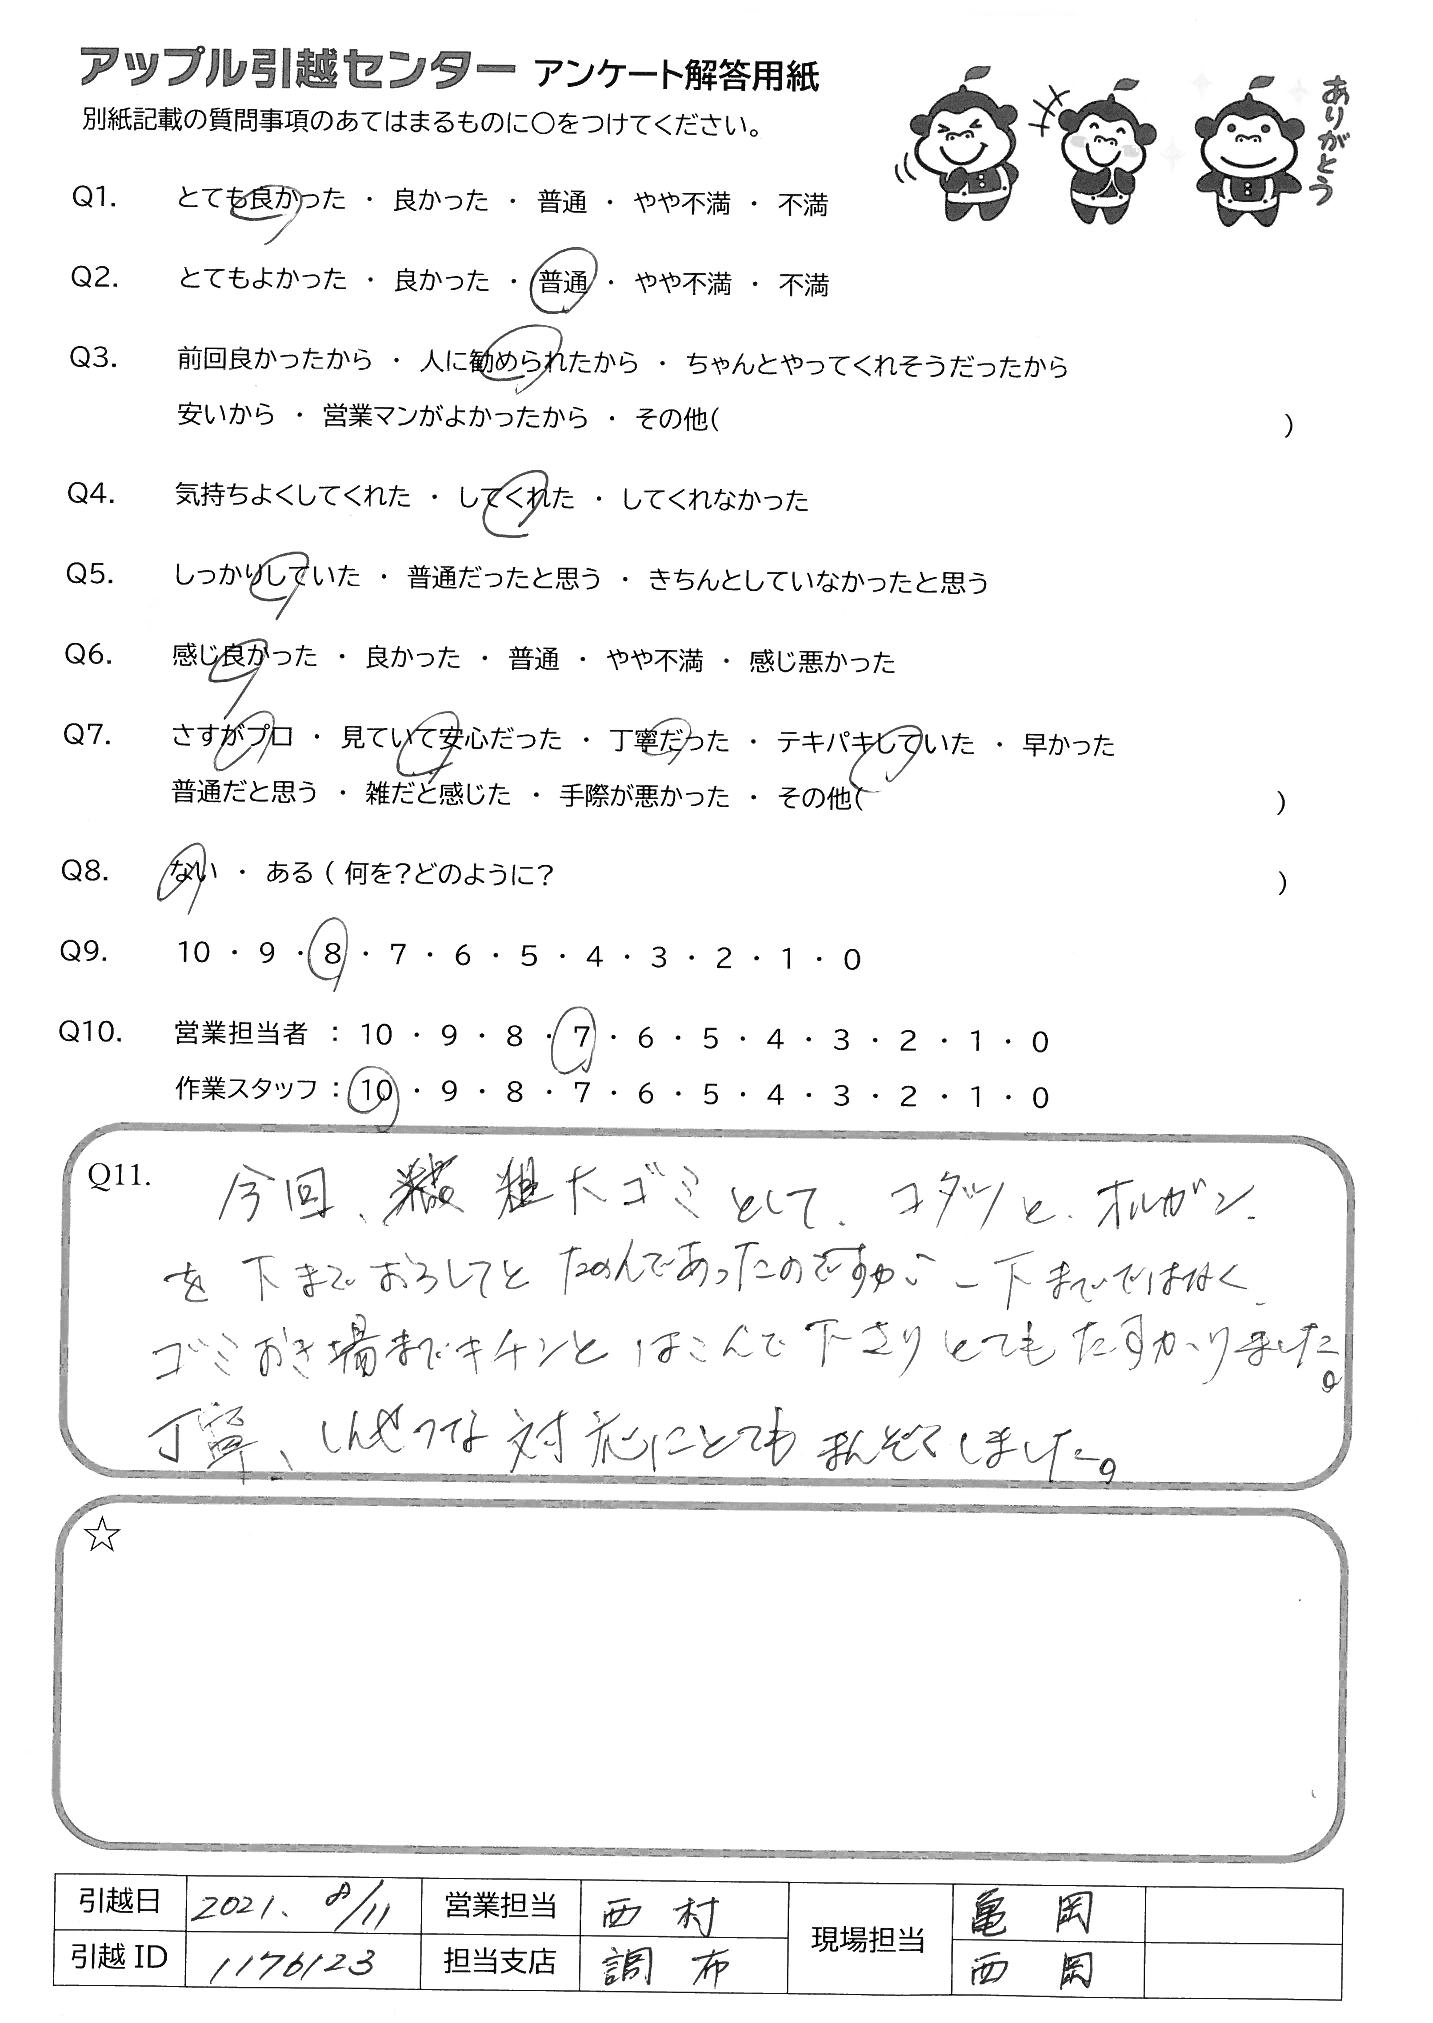 アップル引越センター アンケート解答用紙
別紙記載の質問事項のあてはまるものに○をつけてください。
ありがとう
Q1. とても良かった ・ 良かった ・ 普通 ・ やや不満 ・ 不満
Q2. とてもよかった ・ 良かった ・ 普通 ・ やや不満 ・ 不満
Q3. 前回良かったから ・ 人に勧められたから ・ ちゃんとやってくれそうだったから
安いから ・ 営業マンがよかったから ・ その他( )
Q4. 気持ちよくしてくれた ・ してくれた ・ してくれなかった
Q5. しっかりしていた ・ 普通だったと思う ・ きちんとしていなかったと思う
Q6. 感じ良かった ・ 良かった ・ 普通 ・ やや不満 ・ 感じ悪かった
Q7. さすがプロ ・ 見ていて安心だった ・ 丁寧だった ・ テキパキしていた ・ 早かった
普通だと思う ・ 雑だと感じた ・ 手際が悪かった ・ その他( )
Q8. ない ・ ある ( 何を?どのように? )
Q9. 10 ・ 9 ・ 8 ・ 7 ・ 6 ・ 5 ・ 4 ・ 3 ・ 2 ・ 1 ・ 0
Q10. 営業担当者 : 10 ・ 9 ・ 8 ・ 7 ・ 6 ・ 5 ・ 4 ・ 3 ・ 2 ・ 1 ・ 0
作業スタッフ : 10 ・ 9 ・ 8 ・ 7 ・ 6 ・ 5 ・ 4 ・ 3 ・ 2 ・ 1 ・ 0
Q11. 今回、粗大ゴミとして、コタツと、オルガン、
を下までおろしてと たのんであったのですが、下までではなく、
ゴミおき場までキチンとはこんで下さりとてもたすかりました。
丁寧、しんせつな対応にとてもまんぞくしました。
☆
引越日 2021. 8/11 営業担当 西村 現場担当 亀岡
引越ID 1176123 担当支店 調布 西岡